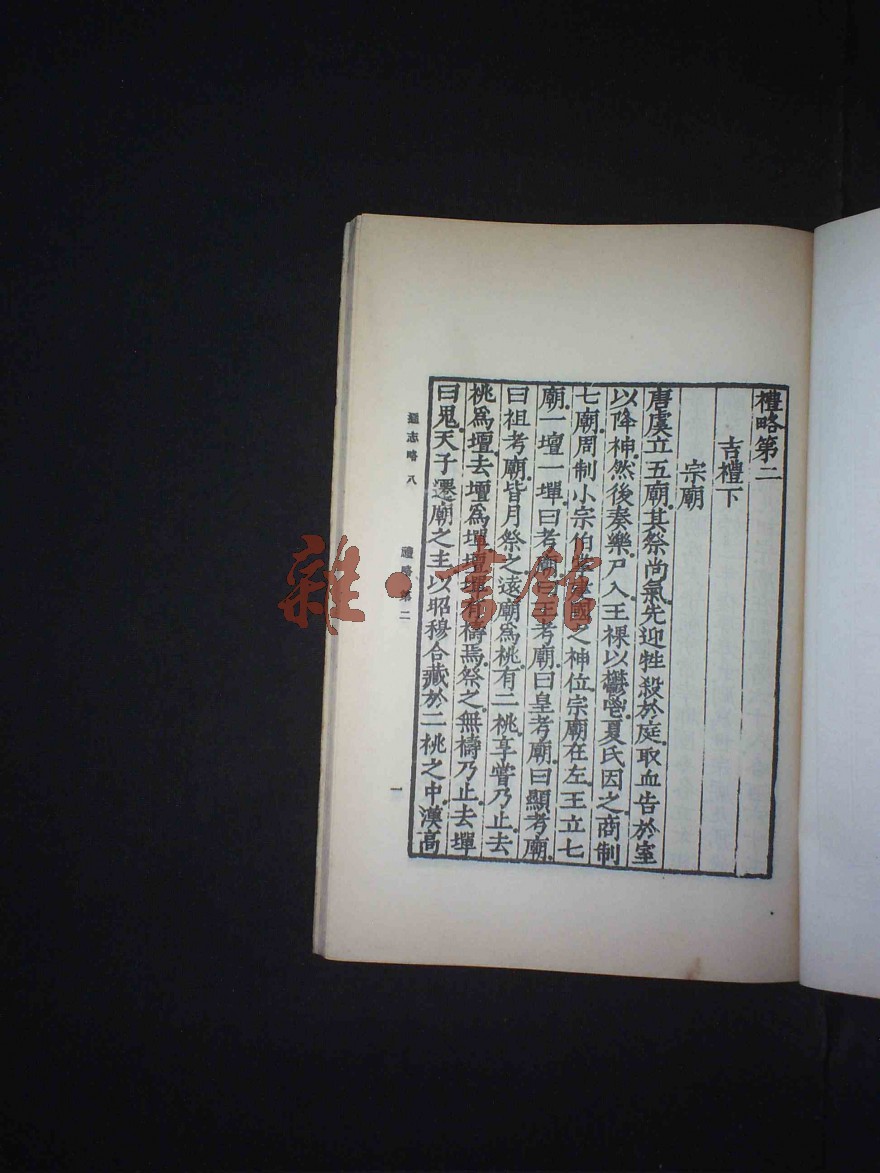 禮略第二
吉禮下
宗廟
唐虞立五廟其祭尚氣先迎牲殺於庭取血告於室
以降神然後奏樂尸入王祼以鬱鬯夏氏因之商制
七廟周制小宗伯掌建國之神位宗廟在左王立七
廟一壇一墠曰考廟曰王考廟曰皇考廟曰顯考廟
曰祖考廟皆月祭之遠廟爲祧有二祧享嘗乃止去
祧爲壇去壇爲墠壇墠有禱焉祭之無禱乃止去墠
曰鬼天子遷廟之主以昭穆合藏於二祧之中漢高
通志略 八 禮略第二 一
雜·書館